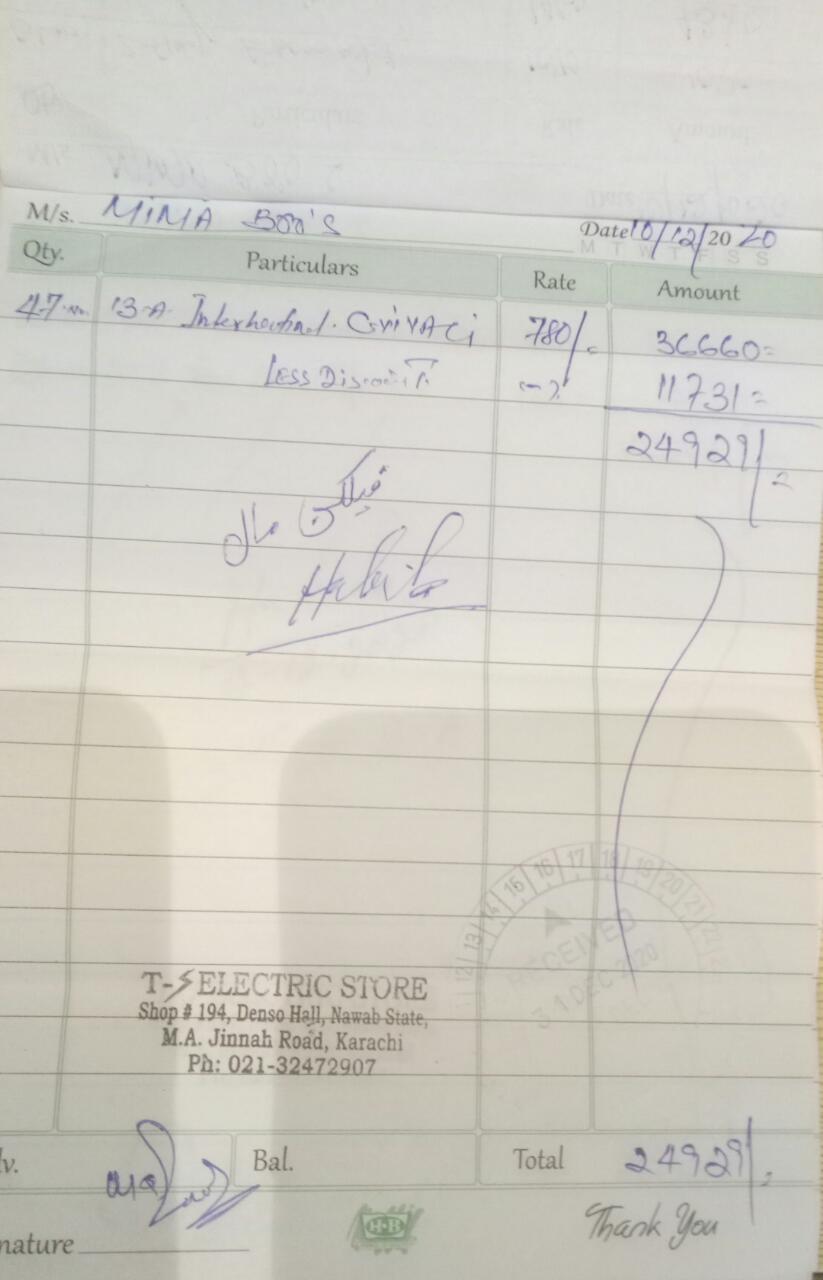 M/s. MIMA Bro's
Date 10/12/2020
M T W T F S S
Qty. Particulars Rate Amount
47 13-A 780/= 36660=
Less Discount 11731=
24929/=
مال
Habib
12 13 14 15 16 17 18 19 20 21 22
RECEIVED
31 DEC 2020
T-S ELECTRIC STORE
Shop # 194, Denso Hall, Nawab State,
M.A. Jinnah Road, Karachi
Ph: 021-32472907
Bal. Total 24929/=
nature
H-B
Thank You